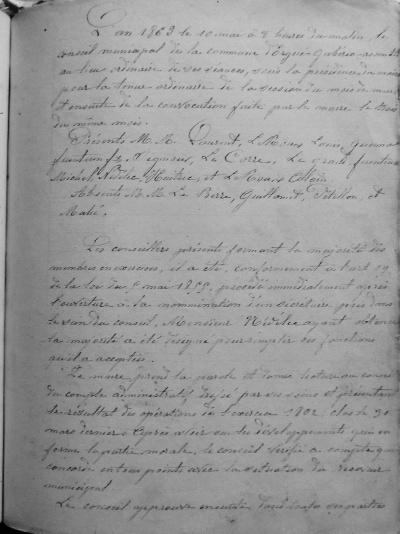 L'an 1863 le 10 mai à 8 heures du matin, le
conseil municipal de la commune d'Ergué-Gabéric assemblé
au lieu ordinaire de ses séances, sous la présidence du maire
pour la tenue ordinaire de la session du mois de mai
et ensuite de la convocation faite par le maire le trois
du même mois.
Présents M. M. Laurent, Le Roux Louis,
, Le Corre, Le grand,
Michel Nédélec, et Le Roux
Absents M. M. Le Berre, Guillamet, Pétillon, et
Mahé.
Les conseillers présents formant la majorité des
membres en exercice, il a été, conformément à l'art 19
de la loi du 5 mai 1855, procédé immédiatement après
l'ouverture à la nomination d'un secrétaire pris dans
le sein du conseil, Monsieur Nédélec ayant obtenu
la majorité a été désigné pour remplir ces fonctions
qu'il a acceptées.
Le maire prend la parole et donne lecture au conseil
du compte administratif dressé par ses soins et présentant
le résultat des opérations de l'exercice 1862, clos le 30
mars dernier. Après avoir ouï les développements qui en
forme la partie morale, le conseil vérifie ce compte qui
concorde en tous points avec la situation du receveur
municipal
Le conseil approuve ensuite dans toutes ses parties